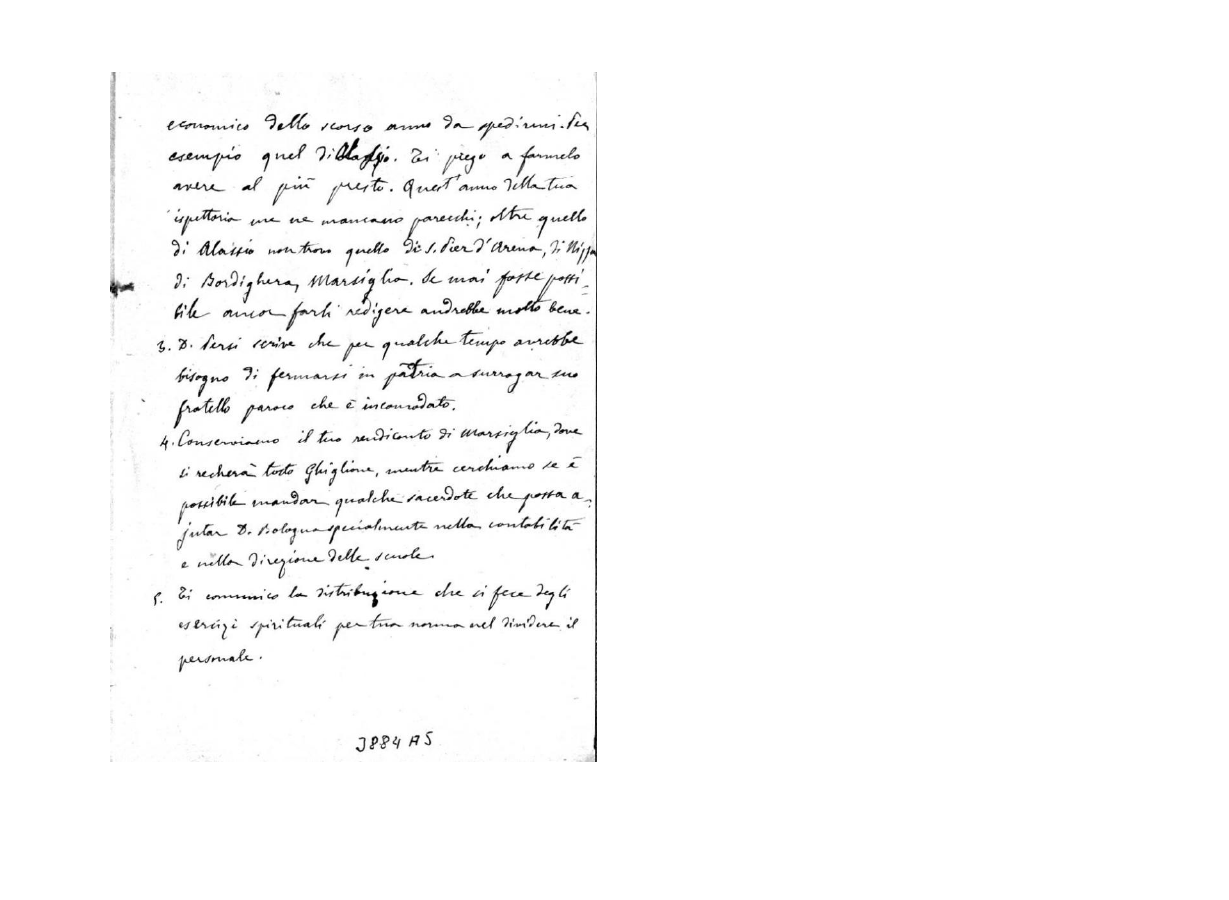 economico dello scorso anno da spedirmi. Per
esempio quel di Alassio. Ti prego a farmelo
avere al più presto. Quest'anno della tua
ispettoria me ne mancano parecchi; oltre quello
di Alassio non trovo quello di S. Pier d'Arena, di Nizza
di Bordighera, Marsiglia. Se mai fosse possi-
bile ancor farli redigere andrebbe molto bene.
3. D. Persi scrive che per qualche tempo avrebbe
bisogno di fermarsi in patria a surrogar suo
fratello paroco che è incomodato.
4. Conserviamo il tuo rendiconto di Marsiglia, dove
si recherà tosto Ghiglione, mentre cerchiamo se è
possibile mandar qualche sacerdote che possa a-
jutar D. Bologna specialmente nella contabilità
e nella direzione delle scuole.
5. Ti comunico la distribuzione che si fece degli
esercizi spirituali per tua norma nel dividere il
personale.
3884 A5